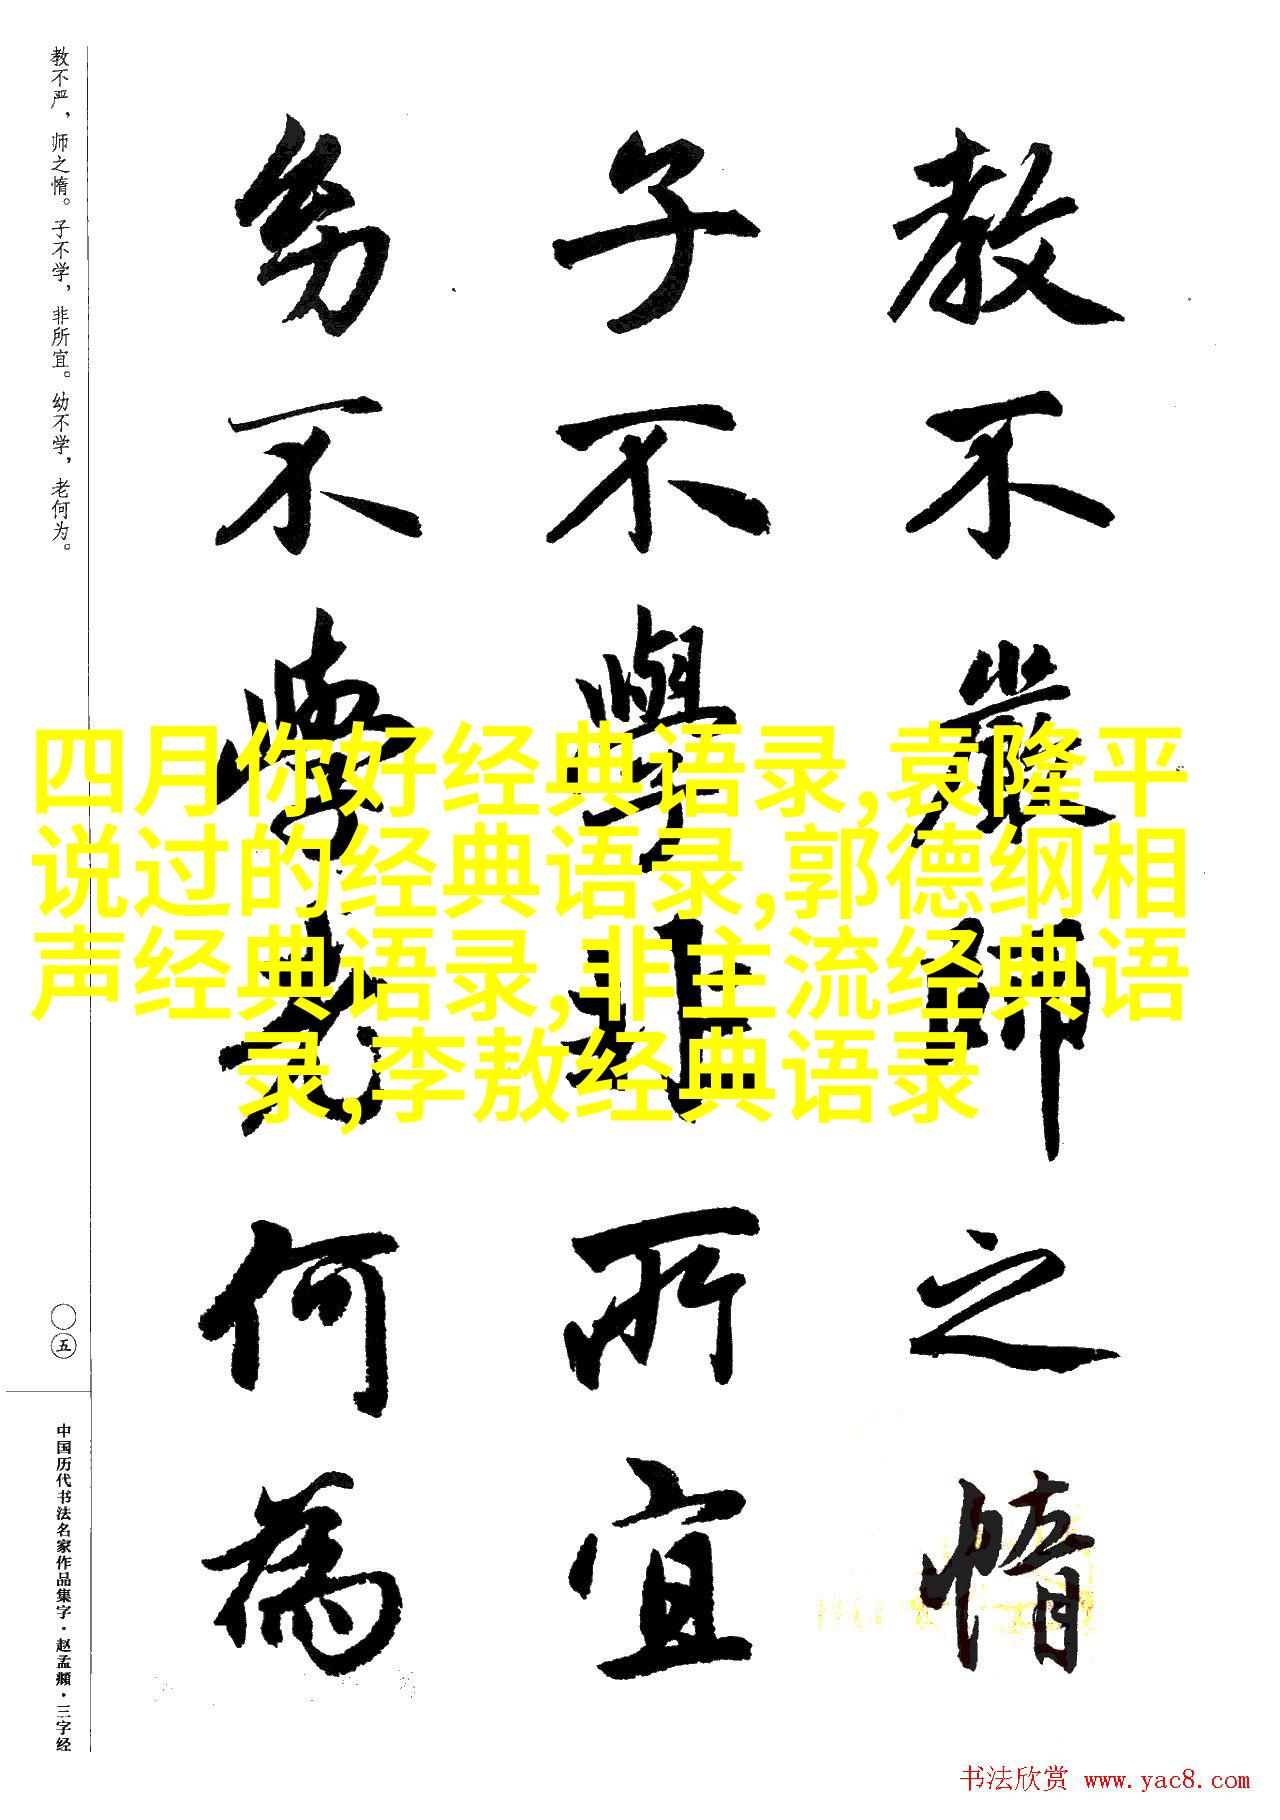 教不嚴師之惰
子不學非所宜
幼不學老何為
教不严，师之惰。子不学，非所宜。幼不学，老何为。
〇五
中国历代书法名家作品集字·赵孟頫·三字经
四月你好经典语录,袁隆平
说过的经典语录,郭德纲相
声经典语录,非主流经典语
录,李敖经典语录
书法欣赏 www.yac8.com